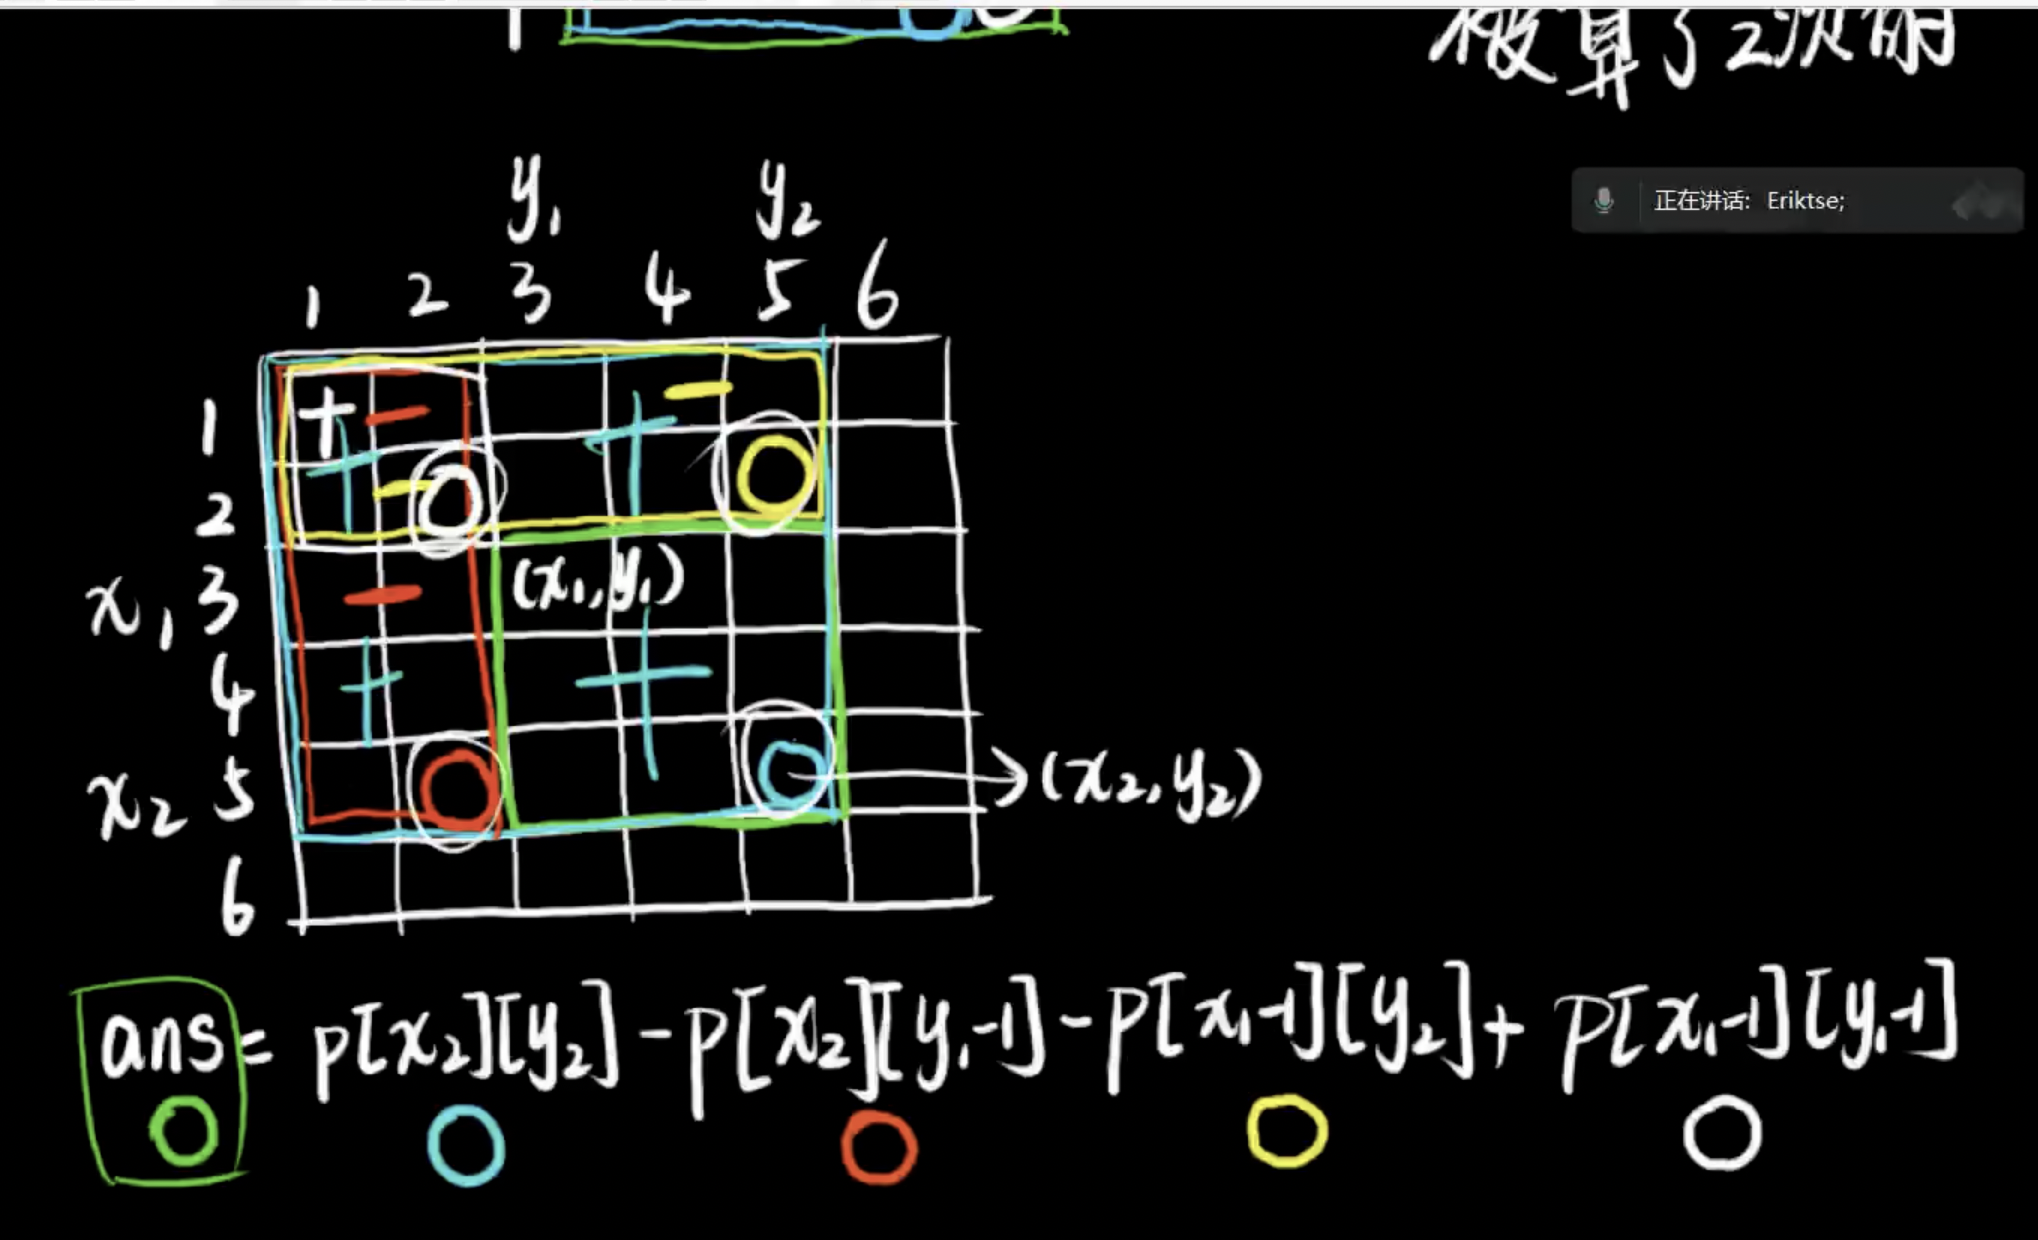 被算了2次的
正在讲话: Eriktse;
y₁ y₂
1 2 3 4 5 6
1
2
x₁ 3
(x₁,y₁)
4
x₂ 5
(x₂,y₂)
6
ans = p[x₂][y₂] - p[x₂][y₁-1] - p[x₁-1][y₂] + p[x₁-1][y₁-1]